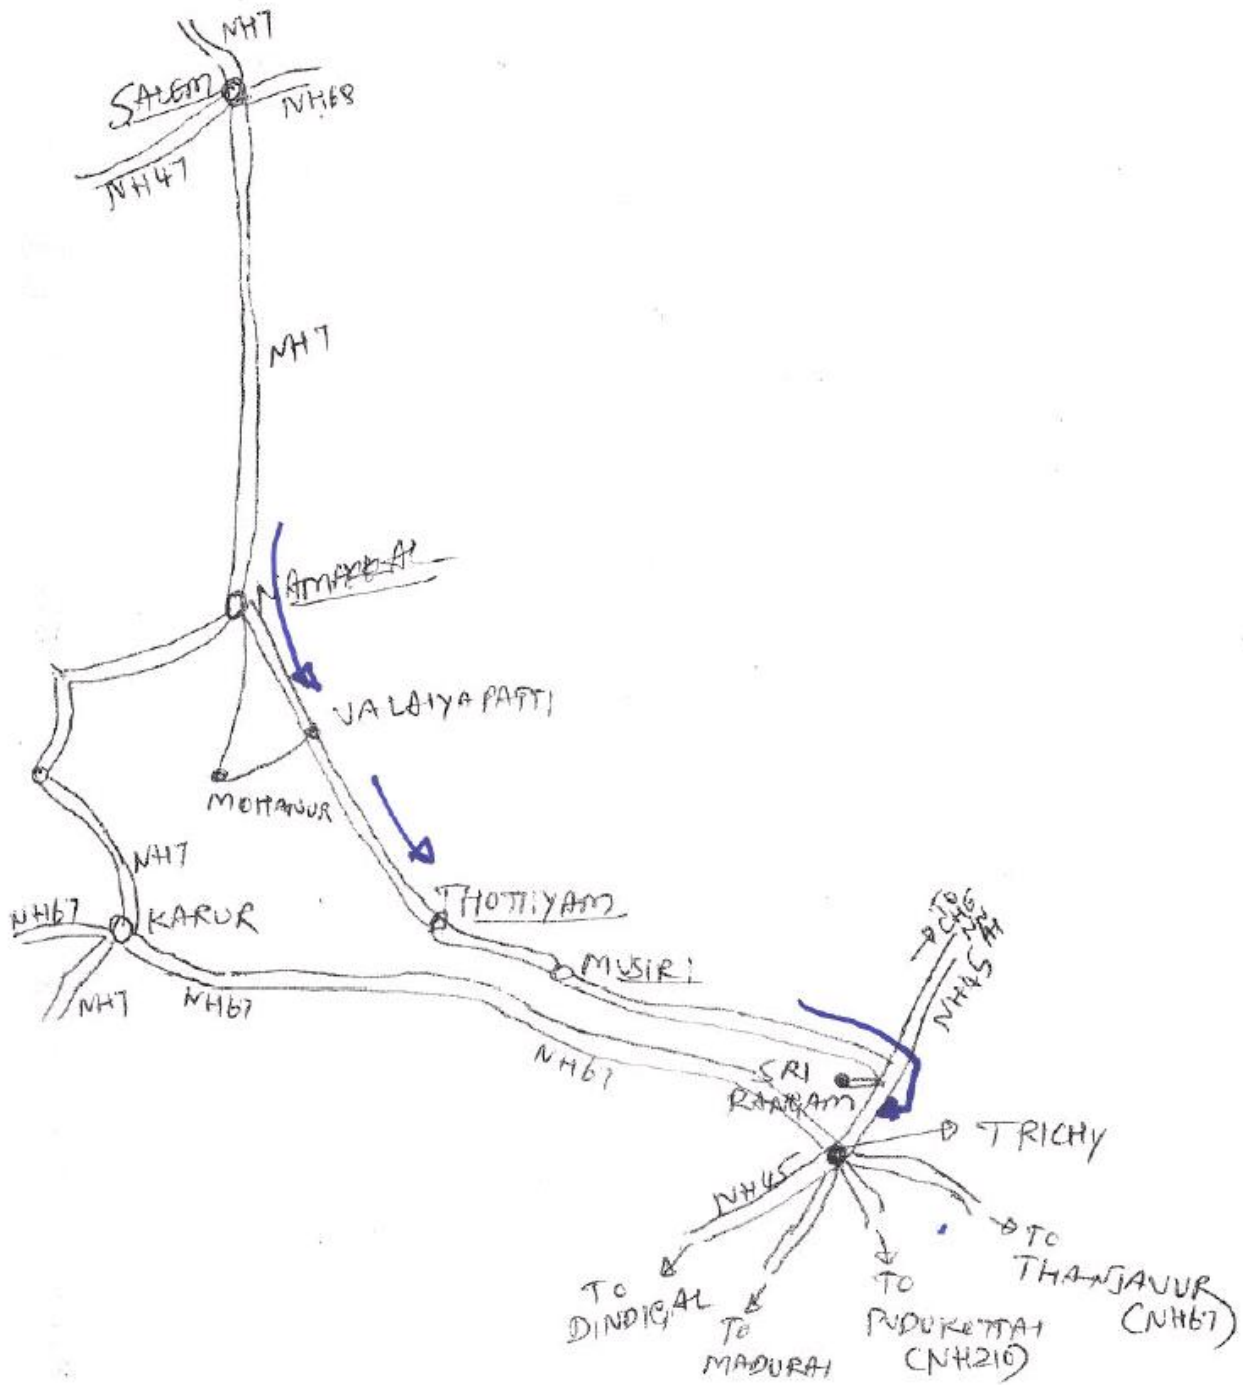 NH7
SALEM
NH68
NH47
NH7
NAMAKKAL
VALAIYAPATTI
MOHANUR
NH7
THOTTIYAM
NH67
KARUR
MUSIRI
NH7
NH67
NH67
TO
NH45
SRI
RANGAM
TRICHY
NH45
TO
DINDIGAL
TO
MADURAI
TO
PUDUKOTTAI
(NH210)
TO
THANJAVUR
(NH67)